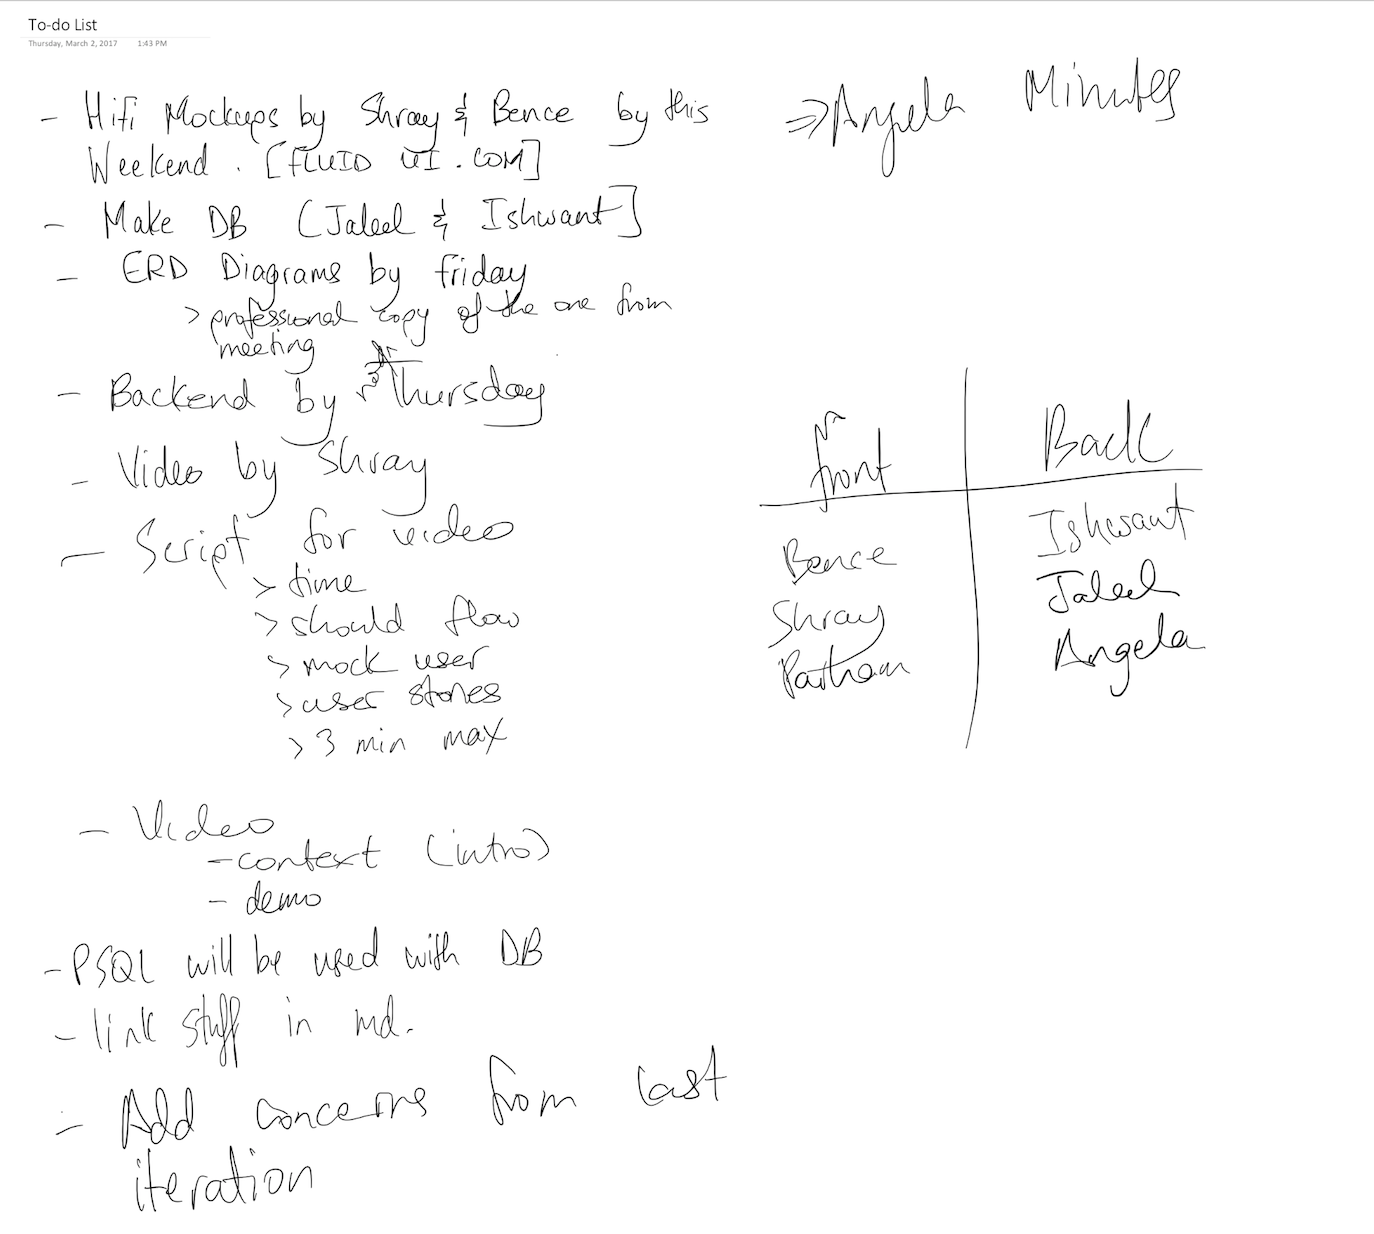 To-do List
Thursday, March 2, 2017 1:43 PM
- Hifi Mockups by Shray & Bence by this
Weekend. [FLUID UI.COM]
- Make DB [Jaleel & Ishwant]
- ERD Diagrams by friday
> professional copy of the one from
meeting
- Backend by next Thursday
- Video by Shray
- Script for video
> time
> should flow
> mock user
> user stories
> 3 min max
- Video
- context (intro)
- demo
- PSQL will be used with DB
- link stuff in md.
- Add concerns from last
iteration
=> Angela Minutes
front Back
Bence Ishwant
Shray Jaleel
Angela